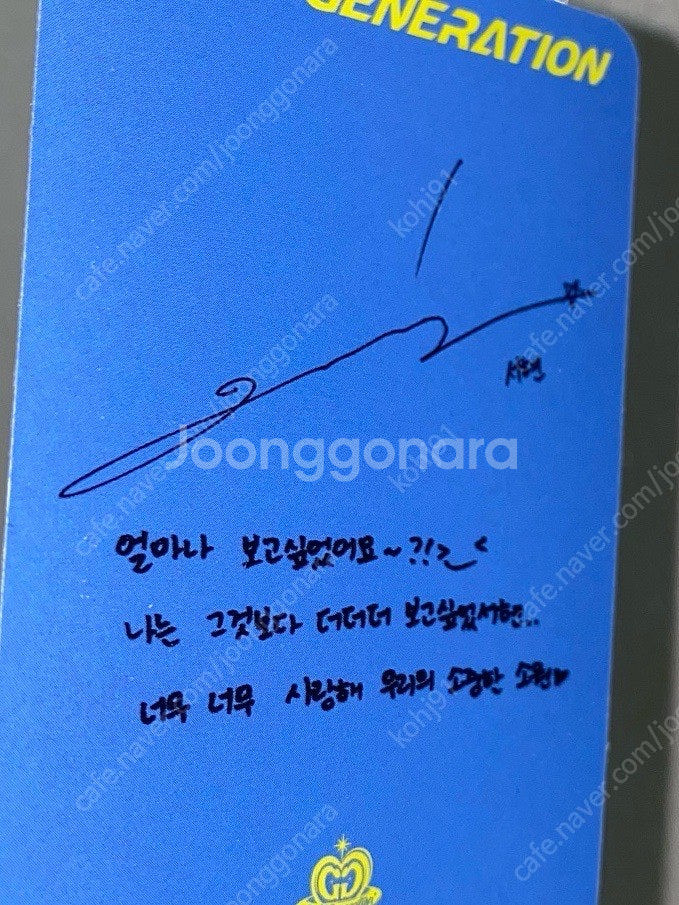 GENERATION
서현
얼마나 보고싶었어요~?!>_<
나는 그것보다 더더더 보고싶었서현..
너무 너무 사랑해 우리의 소중한 소원♥
GG
Joonggonara
cafe.naver.com/joonggonara
kohj91